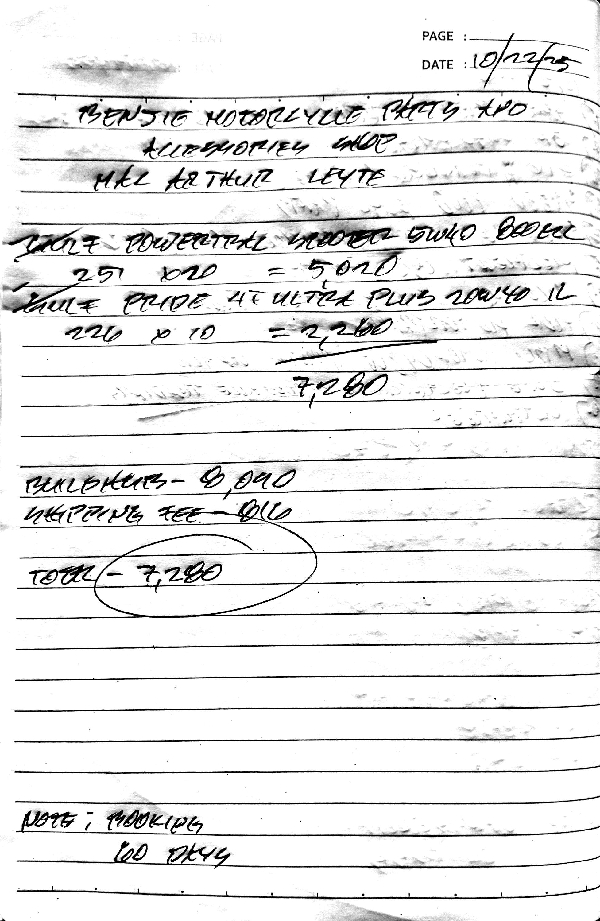 PAGE :
DATE : 10/22/25
BENJIE MOTORCYCLE PARTS AND
ACCESSORIES SHOP
MAC ARTHUR LEYTE
POWERTRAC SCOOTER 5W40 800ML
251 x 20 = 5,020
PRIDE 4T ULTRA PLUS 20W40 1L
226 x 10 = 2,260
7,280
- 8,090
SHIPPING FEE - 816
TOTAL - 7,280
NOTE ; BOOKING
60 DAYS